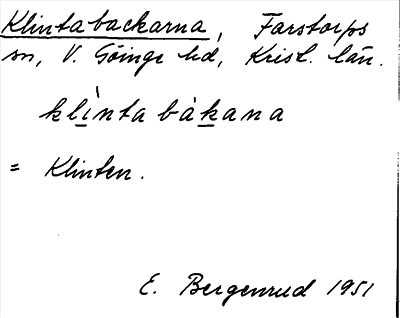 Klintabackarna, Farstorps
sn, V. Göinge hd, Krist. län.
klìnta bàkana
= Klinten.
E. Bergenrud 1951